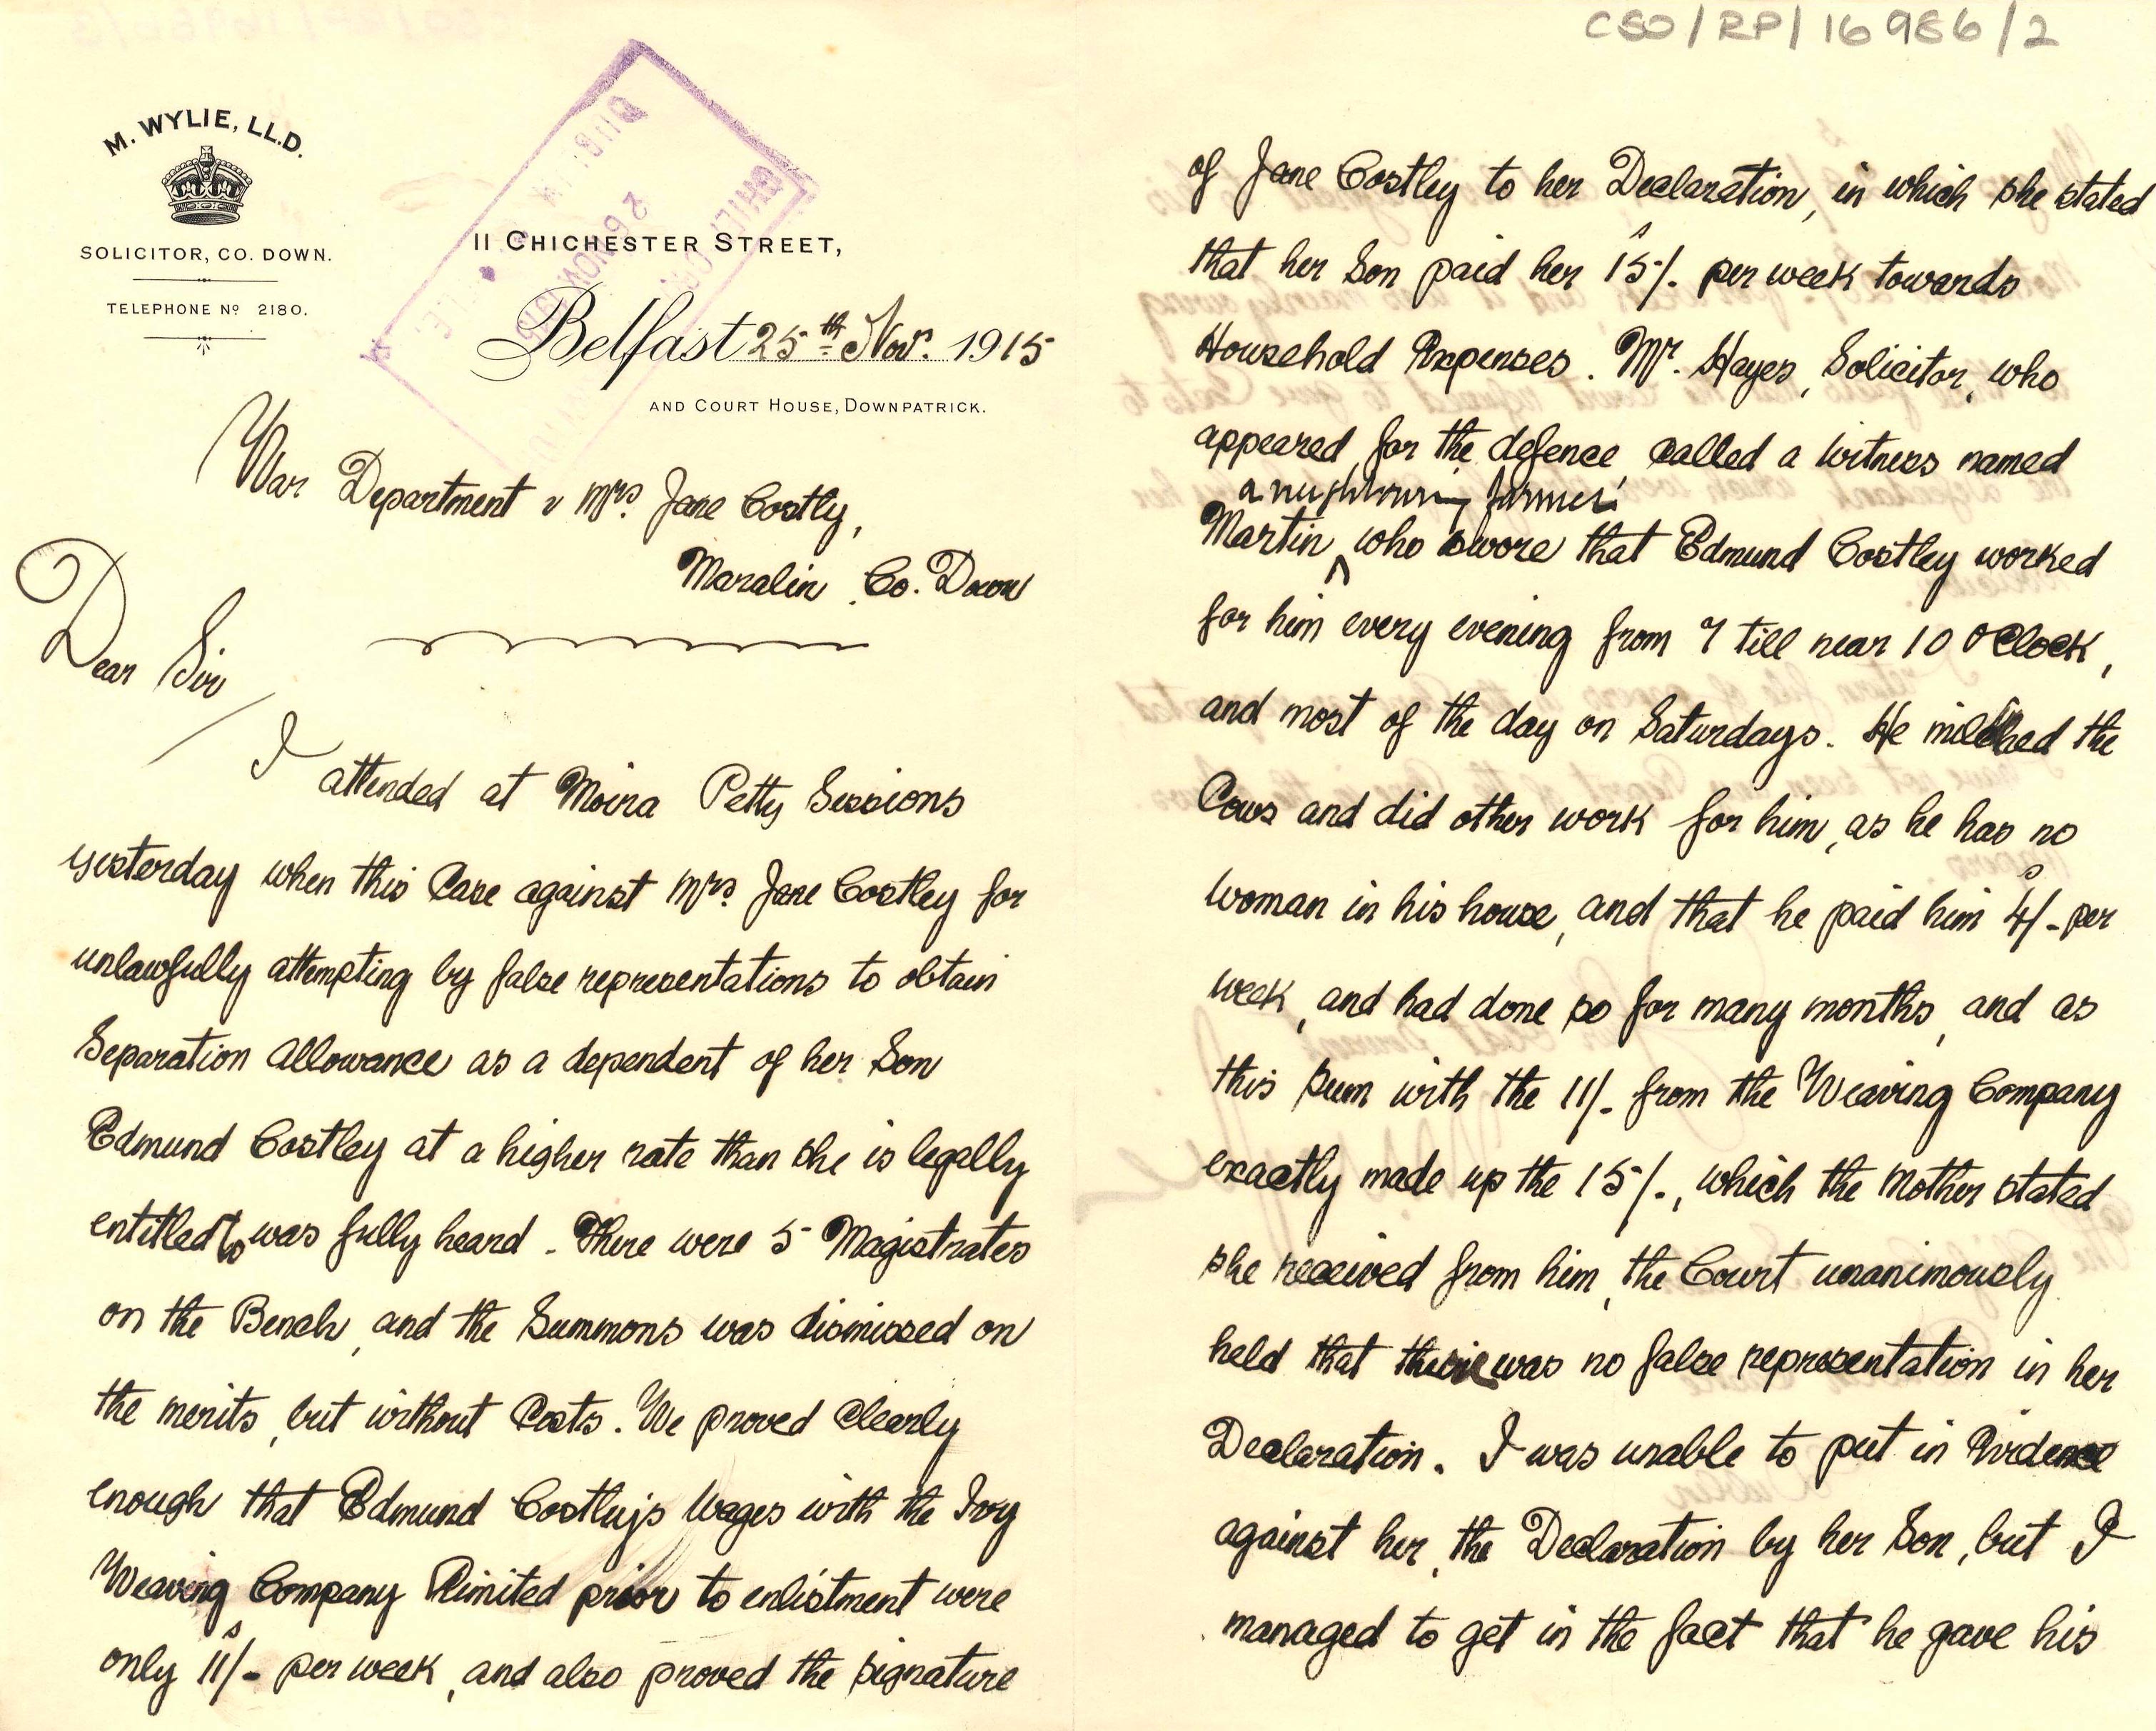 CSO/RP/16986/2
M. WYLIE, LL.D.
SOLICITOR, CO. DOWN.
TELEPHONE No 2180.
26 NOV 1915
11 CHICHESTER STREET,
Belfast 25th Nov. 1915
AND COURT HOUSE, DOWNPATRICK.
War Department v Mrs. Jane Costly,
Maralin, Co. Down
Dear Sir
I attended at Moira Petty Sessions
yesterday when this Case against Mrs. Jane Costley for
unlawfully attempting by false representations to obtain
Separation Allowance as a dependent of her Son
Edmund Costley at a higher rate than she is legally
entitled to was fully heard. There were 5 Magistrates
on the Bench, and the Summons was dismissed on
the merits, but without Costs. We proved clearly
enough that Edmund Costley's wages with the Ivy
Weaving Company Limited prior to enlistment were
only 11s/- per week, and also proved the signature
of Jane Costley to her Declaration, in which she stated
that her Son paid her 15s/. per week towards
Household Expenses. Mr. Hayes, Solicitor, who
appeared for the defence called a witness named
a neighbouring farmer
Martin, who swore that Edmund Costley worked
for him every evening from 7 till near 10 OClock,
and most of the day on Saturdays. He milked the
Cows and did other work for him, as he has no
woman in his house, and that he paid him 4s/- per
week, and had done so for many months, and as
this sum with the 11/- from the Weaving Company
exactly made up the 15/., which the Mother stated
she received from him, the Court unanimously
held that there was no false representation in her
Declaration. I was unable to put in Evidence
against her, the Declaration by her Son, but I
managed to get in the fact that he gave his